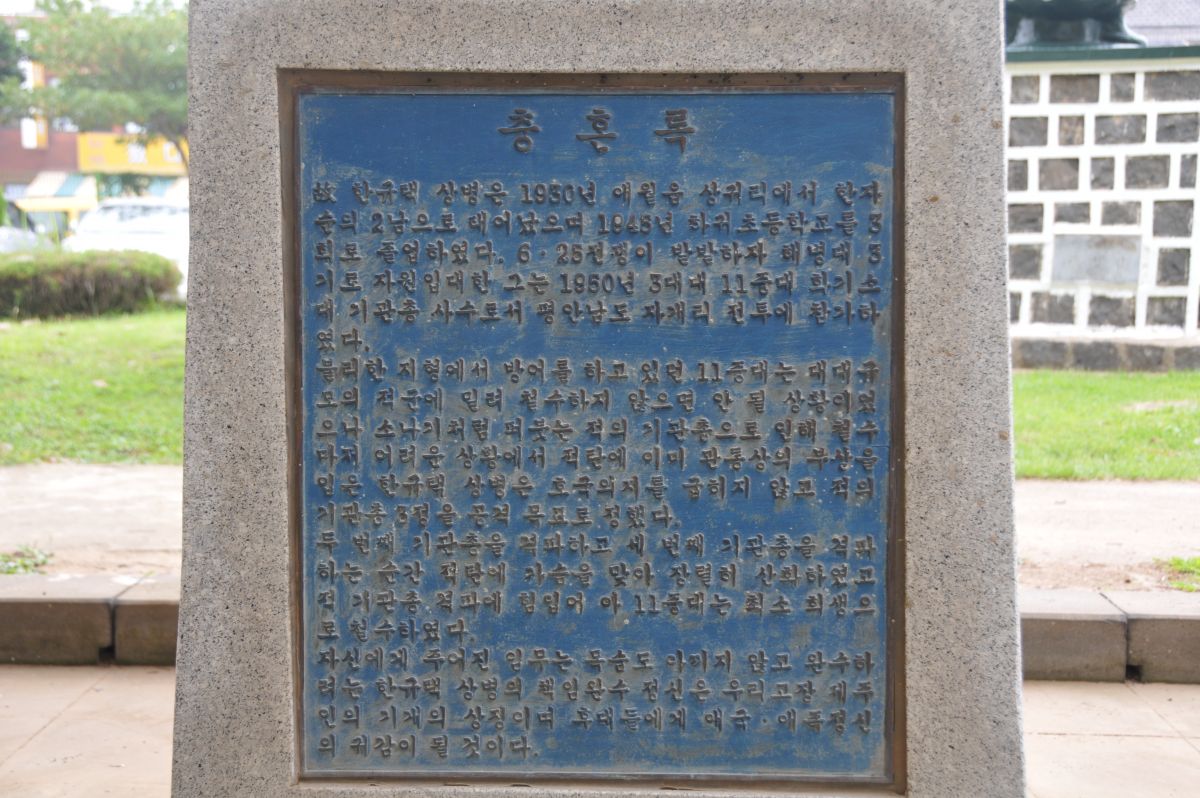 충 혼 록
故 한규택 상병은 1930년 애월읍 상귀리에서 한자
순의 2남으로 태어났으며 1945년 하귀초등학교를 3
회로 졸업하였다. 6·25전쟁이 발발하자 해병대 3
기로 자원입대한 그는 1950년 3대대 11중대 화기소
대 기관총 사수로서 평안남도 자개리 전투에 참가하
였다.
불리한 지형에서 방어를 하고 있던 11중대는 대대규
모의 적군에 밀려 철수하지 않으면 안 될 상황이었
으나 소나기처럼 퍼붓는 적의 기관총으로 인해 철수
마저 어려운 상황에서 적탄에 이미 관통상의 부상을
입은 한규택 상병은 호국의지를 굽히지 않고 적의
기관총 3정을 공격 목표로 정했다.
두 번째 기관총을 격파하고 세 번째 기관총을 격파
하는 순간 적탄에 가슴을 맞아 장렬히 산화하였고
적 기관총 격파에 힘입어 아 11중대는 최소 희생으
로 철수하였다.
자신에게 주어진 임무는 목숨도 아끼지 않고 완수하
려는 한규택 상병의 책임완수 정신은 우리고장 제주
인의 기개의 상징이며 후대들에게 애국·애족정신
의 귀감이 될 것이다.